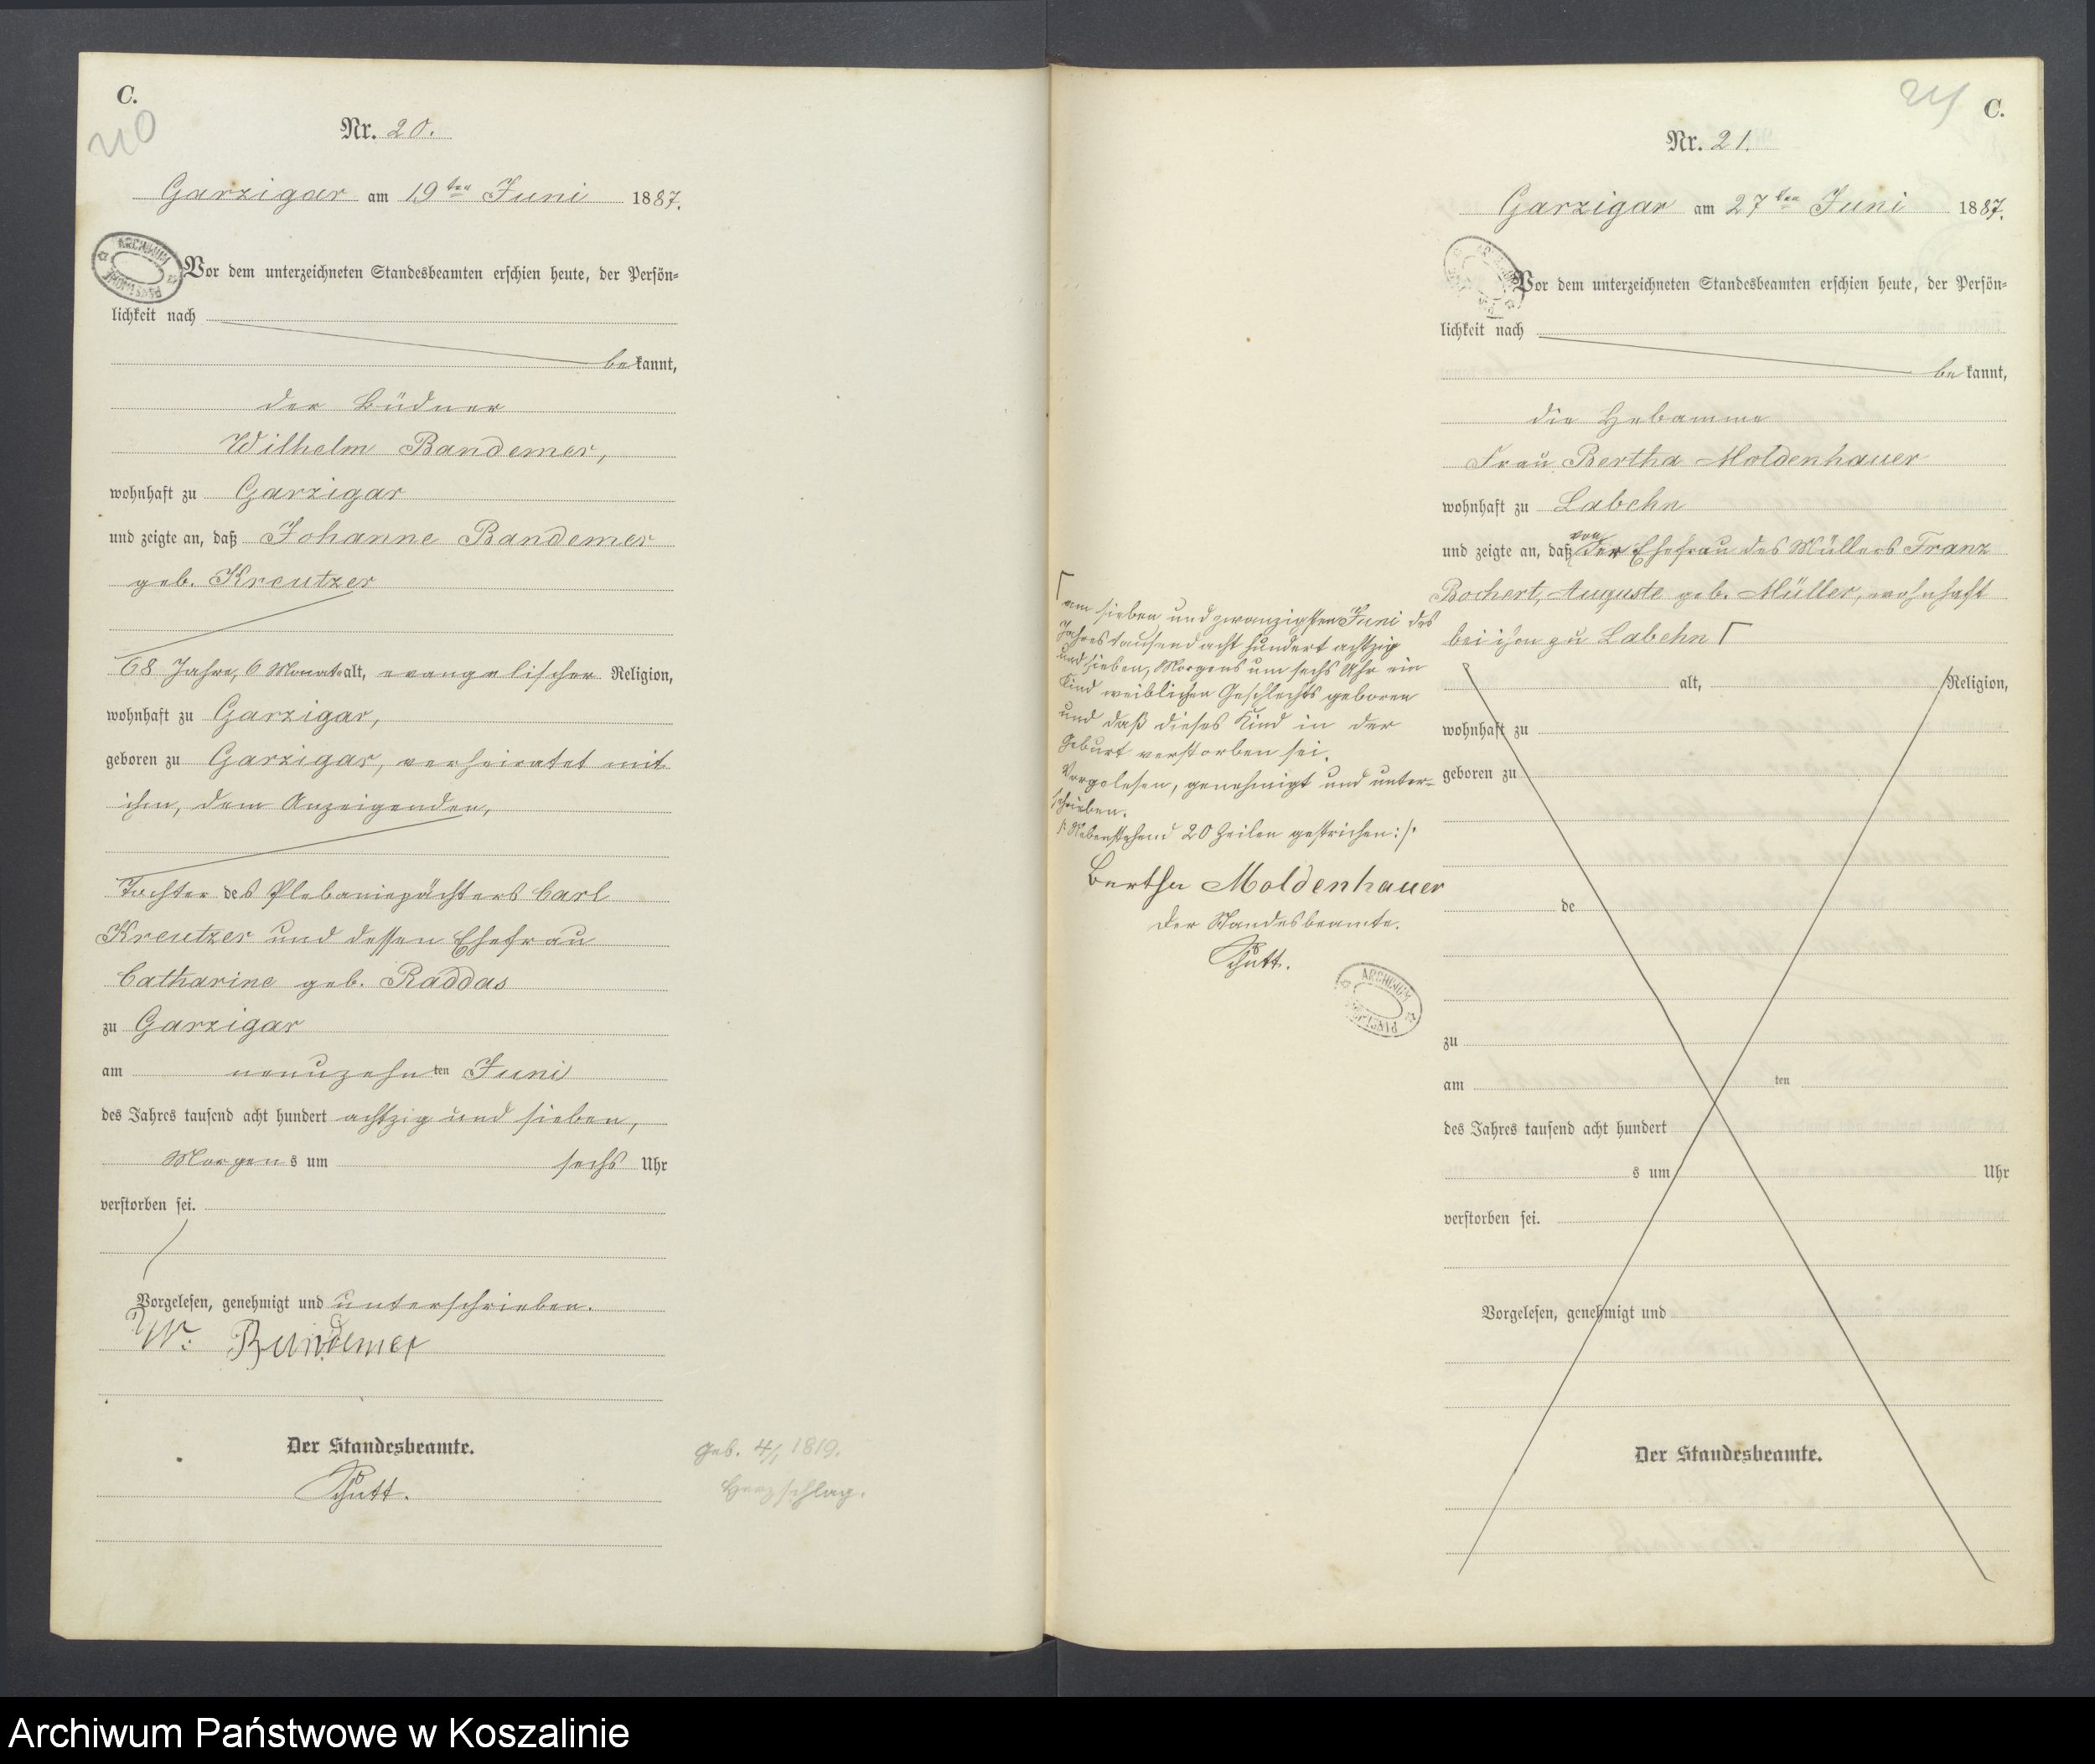 C.
210
Nr. 20.
Garzigar am 19ten Juni 1887.
ARCHIWUM PAŃSTWOWE
Vor dem unterzeichneten Standesbeamten erschien heute, der Persön-
lichkeit nach
bekannt,
der Büdner
Wilhelm Bandemer,
wohnhaft zu Garzigar
und zeigte an, daß Johanne Bandemer
geb. Kreutzer
68 Jahre, 6 Monate alt, evangelischer Religion,
wohnhaft zu Garzigar,
geboren zu Garzigar, verheiratet mit
ihm, dem Anzeigenden,
Tochter des Plebaniepächters Carl
Kreutzer und dessen Ehefrau
Catharine geb. Raddas
zu Garzigar
am neunzehnten Juni
des Jahres tausend acht hundert achtzig und sieben,
Morgens um sechs Uhr
verstorben sei.
Vorgelesen, genehmigt und unterschrieben.
W. Bandemer
Der Standesbeamte.
Schütt.
geb. 4/1 1819.
Herzschlag.
C.
Nr. 21.
Garzigar am 27ten Juni 1887.
Vor dem unterzeichneten Standesbeamten erschien heute, der Persön-
lichkeit nach
bekannt,
die Hebamme
Frau Bertha Moldenhauer
wohnhaft zu Labehn
und zeigte an, daß von der Ehefrau des Müllers Franz
Bochert, Auguste geb. Müller, wohnhaft
bei ihm zu Labehn Γ
Γ am sieben und zwanzigsten Juni des
Jahres tausend acht hundert achtzig
und sieben, Morgens um sechs Uhr ein
Kind weiblichen Geschlechts geboren
und daß dieses Kind in der
Geburt verstorben sei.
Vorgelesen, genehmigt und unter-
schrieben.
/: Nebenstehend 20 Zeilen gestrichen :/.
Bertha Moldenhauer
Der Standesbeamte.
Schütt.
ARCHIWUM PAŃSTWOWE
alt, Religion,
wohnhaft zu
geboren zu
de
zu
am ten
des Jahres tausend acht hundert
s um Uhr
verstorben sei.
Vorgelesen, genehmigt und
Der Standesbeamte.
Archiwum Państwowe w Koszalinie